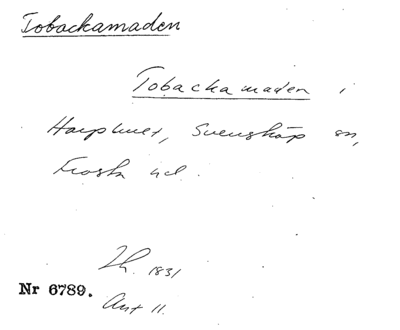 Tobackamaden
Tobackamaden i
Harphult, Svensköp sn,
Frosta hd.
1831
Nr 6789.
Akt 11.